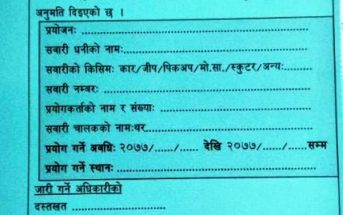 अनुमति दिइएको छ ।
प्रयोजनः ........................................
सवारी धनीको नामः........................................
सवारीको किसिमः कार/जीप/पिकअप/मो.सा./स्कुटर/अन्यः.........
सवारी नम्बरः ........................................
प्रयोगकर्ताको नाम र संख्याः ........................................
सवारी चालकको नामःथर........................................
प्रयोग गर्ने अवधिः २०७७/....../...... देखि २०७७/....../......सम्म
प्रयोग गर्ने स्थानः ........................................
जारी गर्ने अधिकारीको
दस्तखत ........................................